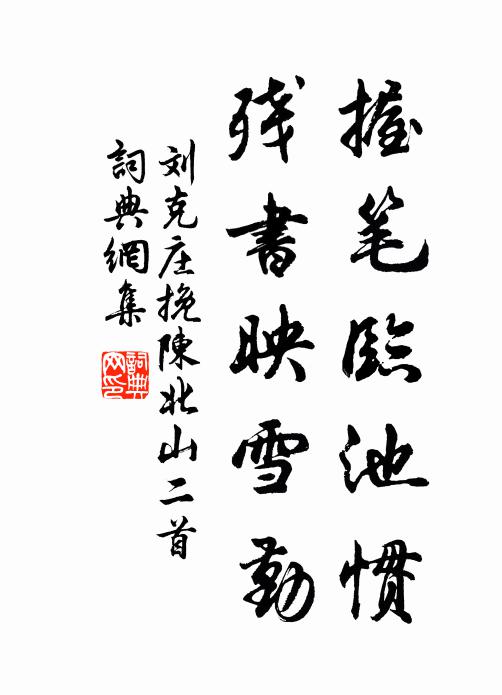 握笔臨池惯
残書映雪勤
刘克庄挽陳北山二首
詞典網集
詞典网印